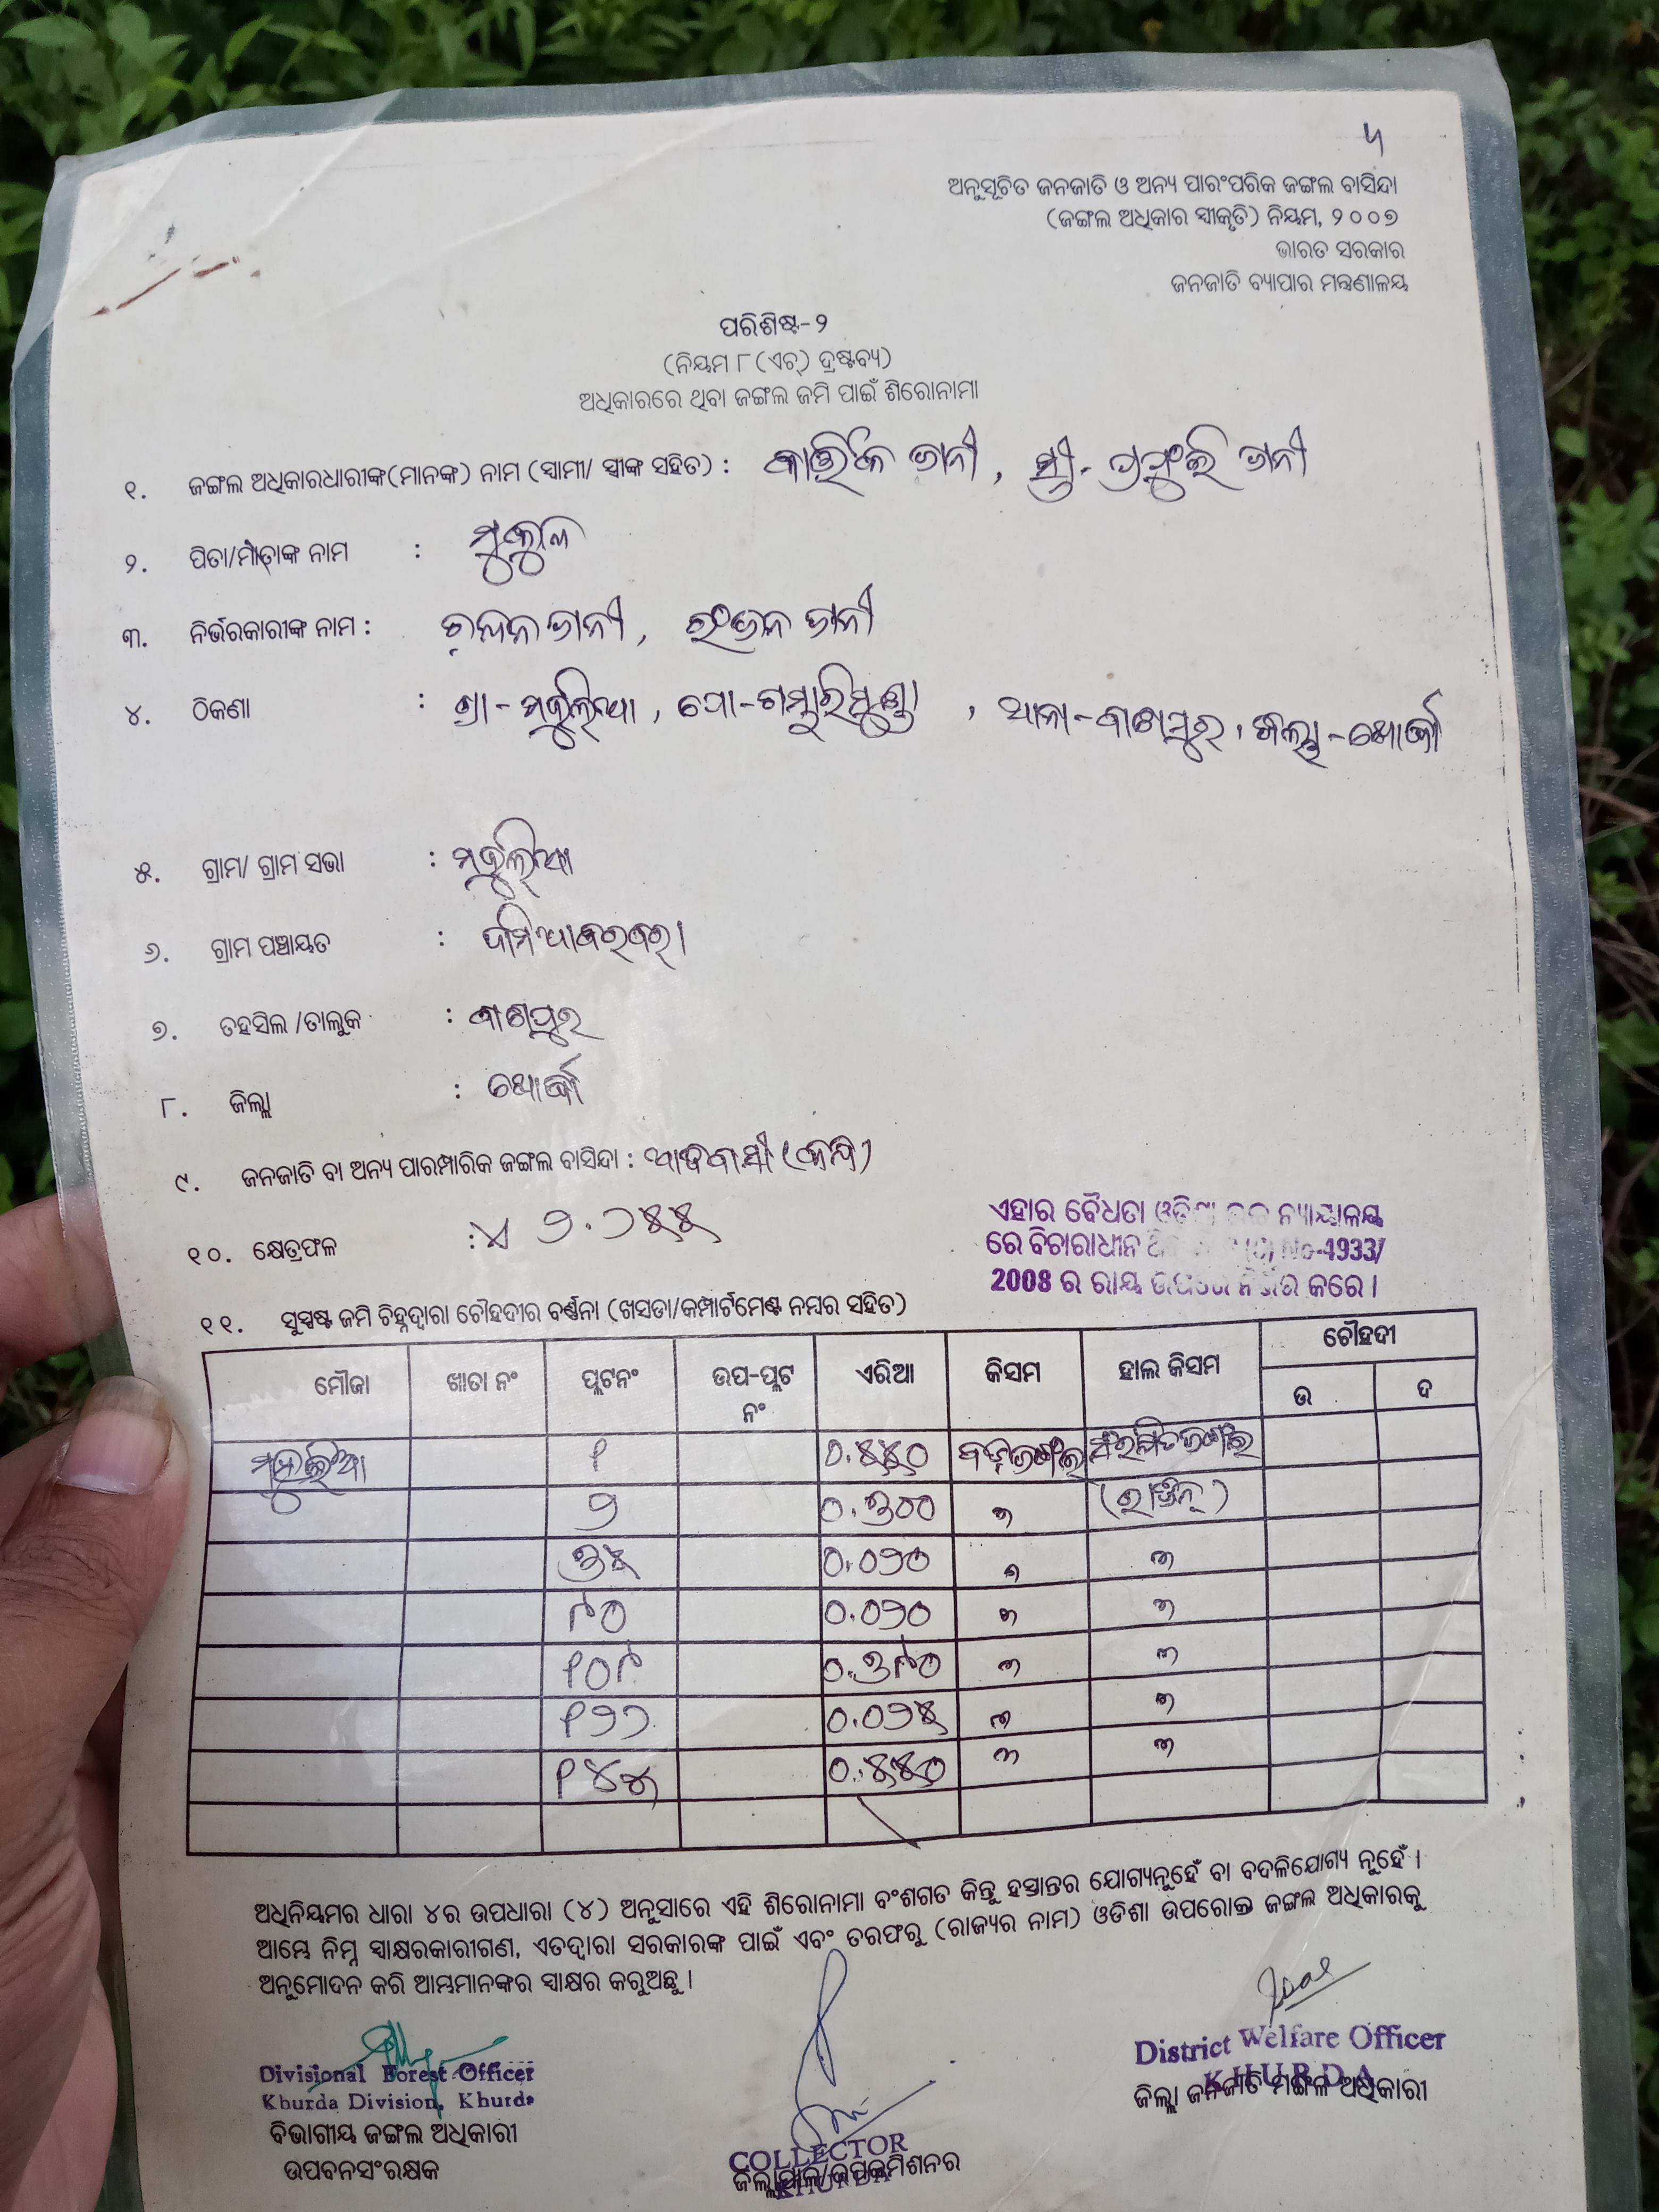 ୳
ଅନୁସୂଚିତ ଜନଜାତି ଓ ଅନ୍ୟ ପାରଂପରିକ ଜଙ୍ଗଲ ବାସିନ୍ଦା
(ଜଙ୍ଗଲ ଅଧିକାର ସ୍ୱୀକୃତି) ନିୟମ, ୨୦୦୭
ଭାରତ ସରକାର
ଜନଜାତି ବ୍ୟାପାର ମନ୍ତ୍ରଣାଳୟ
ପରିଶିଷ୍ଟ-୨
(ନିୟମ ୮ (ଏଚ୍) ଦ୍ରଷ୍ଟବ୍ୟ)
ଅଧିକାରରେ ଥିବା ଜଙ୍ଗଲ ଜମି ପାଇଁ ଶିରୋନାମା
୧. ଜଙ୍ଗଲ ଅଧିକାରଧାରୀଙ୍କ(ମାନଙ୍କ) ନାମ (ସ୍ୱାମୀ/ ସ୍ତ୍ରୀଙ୍କ ସହିତ) : କାର୍ତ୍ତିକ ଜାନୀ, ସ୍ତ୍ରୀ- ଜାନୀ
୨. ପିତା/ମାତାଙ୍କ ନାମ : ମୁକୁଳ
୩. ନିର୍ଭରକାରୀଙ୍କ ନାମ : ଚନ୍ଦନ ଜାନୀ, ରଂଜନ ଜାନୀ
୪. ଠିକଣା : ଗ୍ରା- ମହୁଲିଆ, ପୋ-ଗମ୍ଭାରିମୁଣ୍ଡା, ଥାନା-ବାଣପୁର, ଜିଲ୍ଲା-ଖୋର୍ଦ୍ଧା
୫. ଗ୍ରାମ/ ଗ୍ରାମ ସଭା : ମହୁଲିଆ
୬. ଗ୍ରାମ ପଞ୍ଚାୟତ : ଦାମିଆବରବରା
୭. ତହସିଲ /ତାଲୁକ : ବାଣପୁର
୮. ଜିଲ୍ଲା : ଖୋର୍ଦ୍ଧା
୯. ଜନଜାତି ବା ଅନ୍ୟ ପାରମ୍ପାରିକ ଜଙ୍ଗଲ ବାସିନ୍ଦା : ଆଦିବାସୀ (କନ୍ଧ)
୧୦. କ୍ଷେତ୍ରଫଳ : ୨.୨୫୫
ଏହାର ବୈଧତା ଓଡ଼ିଶା ନ୍ୟାୟାଳୟ
ରେ ବିଚାରାଧୀନ No-4933/
2008 ର ରାୟ ଉପରେ ନିର୍ଭର କରେ।
୧୧. ସୁସ୍ପଷ୍ଟ ଜମି ଚିହ୍ନଦ୍ୱାରା ଚୌହଦୀର ବର୍ଣ୍ଣନା (ଖସଡା/କମ୍ପାର୍ଟମେଣ୍ଟ ନମ୍ବର ସହିତ)
ମୌଜା ଖାତା ନଂ ପ୍ଲଟନଂ ଉପ-ପ୍ଲଟ ନଂ ଏରିଆ କିସମ ହାଲ କିସମ ଚୌହଦୀ
ଉ ଦ
ମହୁଲିଆ ୧ ୦.୫୫୦ ବଡ଼ଜଙ୍ଗଲ ସଂରକ୍ଷିତଜଙ୍ଗଲ
୨ ୦.୩୦୦ ୩
୩୫ ୦.୦୨୦ ୩ ୩
୯୦ ୦.୦୨୦ ୩ ୩
୧୦୯ ୦.୩୯୦ ୩ ୩
୧୨୨ ୦.୦୨୫ ୩ ୩
୧୪୫ ୦.୫୫୦ ୩ ୩
ଅଧିନିୟମର ଧାରା ୪ର ଉପଧାରା (୪) ଅନୁସାରେ ଏହି ଶିରୋନାମା ବଂଶଗତ କିନ୍ତୁ ହସ୍ତାନ୍ତର ଯୋଗ୍ୟନୁହେଁ ବା ବଦଳିଯୋଗ୍ୟ ନୁହେଁ ।
ଆମ୍ଭେ ନିମ୍ନ ସ୍ୱାକ୍ଷରକାରୀଗଣ, ଏତଦ୍ୱାରା ସରକାରଙ୍କ ପାଇଁ ଏବଂ ତରଫରୁ (ରାଜ୍ୟର ନାମ) ଓଡିଶା ଉପରୋକ୍ତ ଜଙ୍ଗଲ ଅଧିକାରକୁ
ଅନୁମୋଦନ କରି ଆମ୍ଭମାନଙ୍କର ସ୍ୱାକ୍ଷର କରୁଅଛୁ ।
Divisional Forest Officer
Khurda Division, Khurda
ବିଭାଗୀୟ ଜଙ୍ଗଲ ଅଧିକାରୀ
ଉପବନସଂରକ୍ଷକ
COLLECTOR
KHURDA
ଜିଲ୍ଲାପାଳ/ଉପକମିଶନର
District Welfare Officer
KHURDA
ଜିଲ୍ଲା ଜନଜାତି ମଙ୍ଗଳ ଅଧିକାରୀ